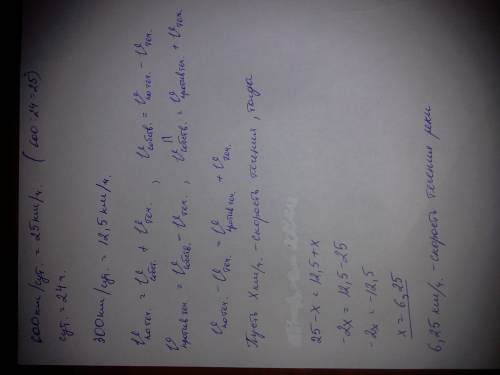 600 км/сут. = 25 км/ч. ( 600 : 24 = 25)
сут. = 24 ч.
300 км/сут. = 12,5 км/ч.
V по теч. = V собст. + V теч. , V собств. = V по теч. - V теч.
||
V против теч. = V собств. - V теч. , V собств. = V против теч. + V теч.
V по теч. - V теч. = V против теч. + V теч.
Пусть х км/ч. - скорость течения , тогда
25 - х = 12,5 + х
-2х = 12,5 - 25
-2х = -12,5
х = 6,25
6,25 км/ч. - скорость течения реки